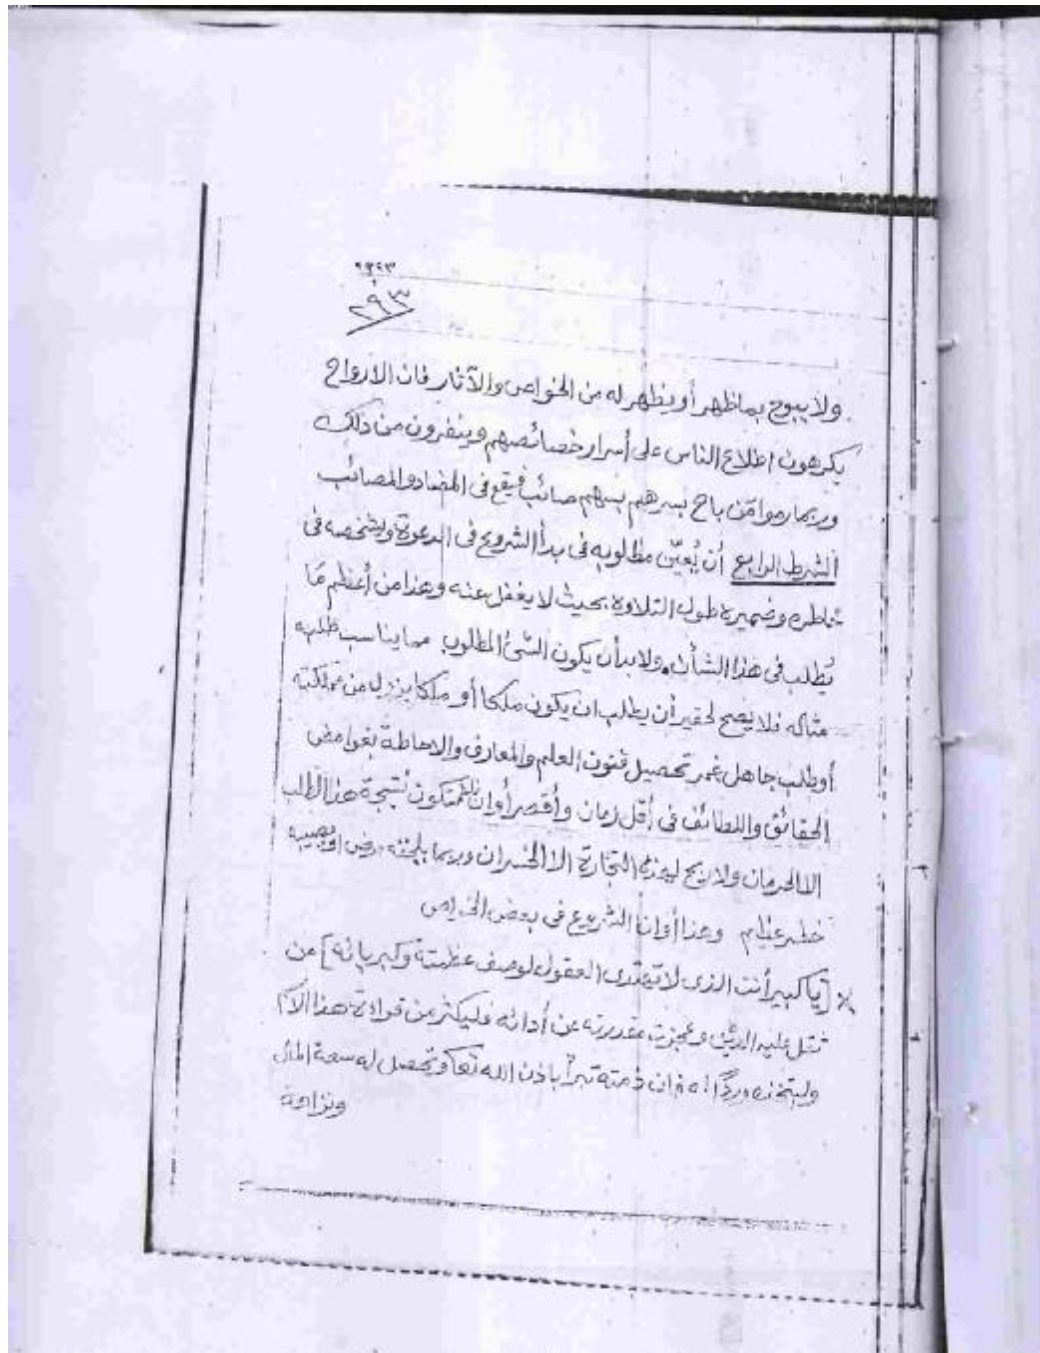 ٢٩٣
٢٩٣
ولا يبوح بما ظهر أو يظهر له من الخواص والآثار فان الأرواح
يكرهون اطلاع الناس على أسرار خصائصهم وينفرون من ذلك
وربما رموا مَن باح بسرهم بسهم صائب فيقع في المضار والمصائب
الشرط الرابع أن يُعيّن مطلوبه في بدأ الشروع في الدعوة ويشخصه في
خاطره وضميره طول التلاوة بحيث لا يغفل عنه وهذا من أعظم مَا
يُطلب في هذا الشأن. ولا بد أن يكون الشئ المطلوب مما يناسب طلبه
مثاله فلا يصح لحقير أن يطلب ان يكون ملكا أو ملكا يزيل من مملكته
أو طلب جاهل غمر تحصيل فنون العلم والمعارف والاحاطة بغوامض
الحقائق واللطائف في أقل زمان وأقصر أوان فلم تكون نتيجة هذا الطلب
الا الحرمان ولا ربح لهذه التجارة الا الخسران وربما يلحقه مرض او يصيبه
خطر عظيم وهذا أوان الشروع في بعض الخواص
× [يا كبير أنت الذى لا تهتدى العقول لوصف عظمته وكبريائه] من
ثقل عليه الدَّين وعجزت مقدرته عن أدائه فليكثر من قراءة هذا الاسم
وليتخذه وردًا له فان ذمته تبرأ باذن الله تعا وتحصل له سعة المال
ونزاهة